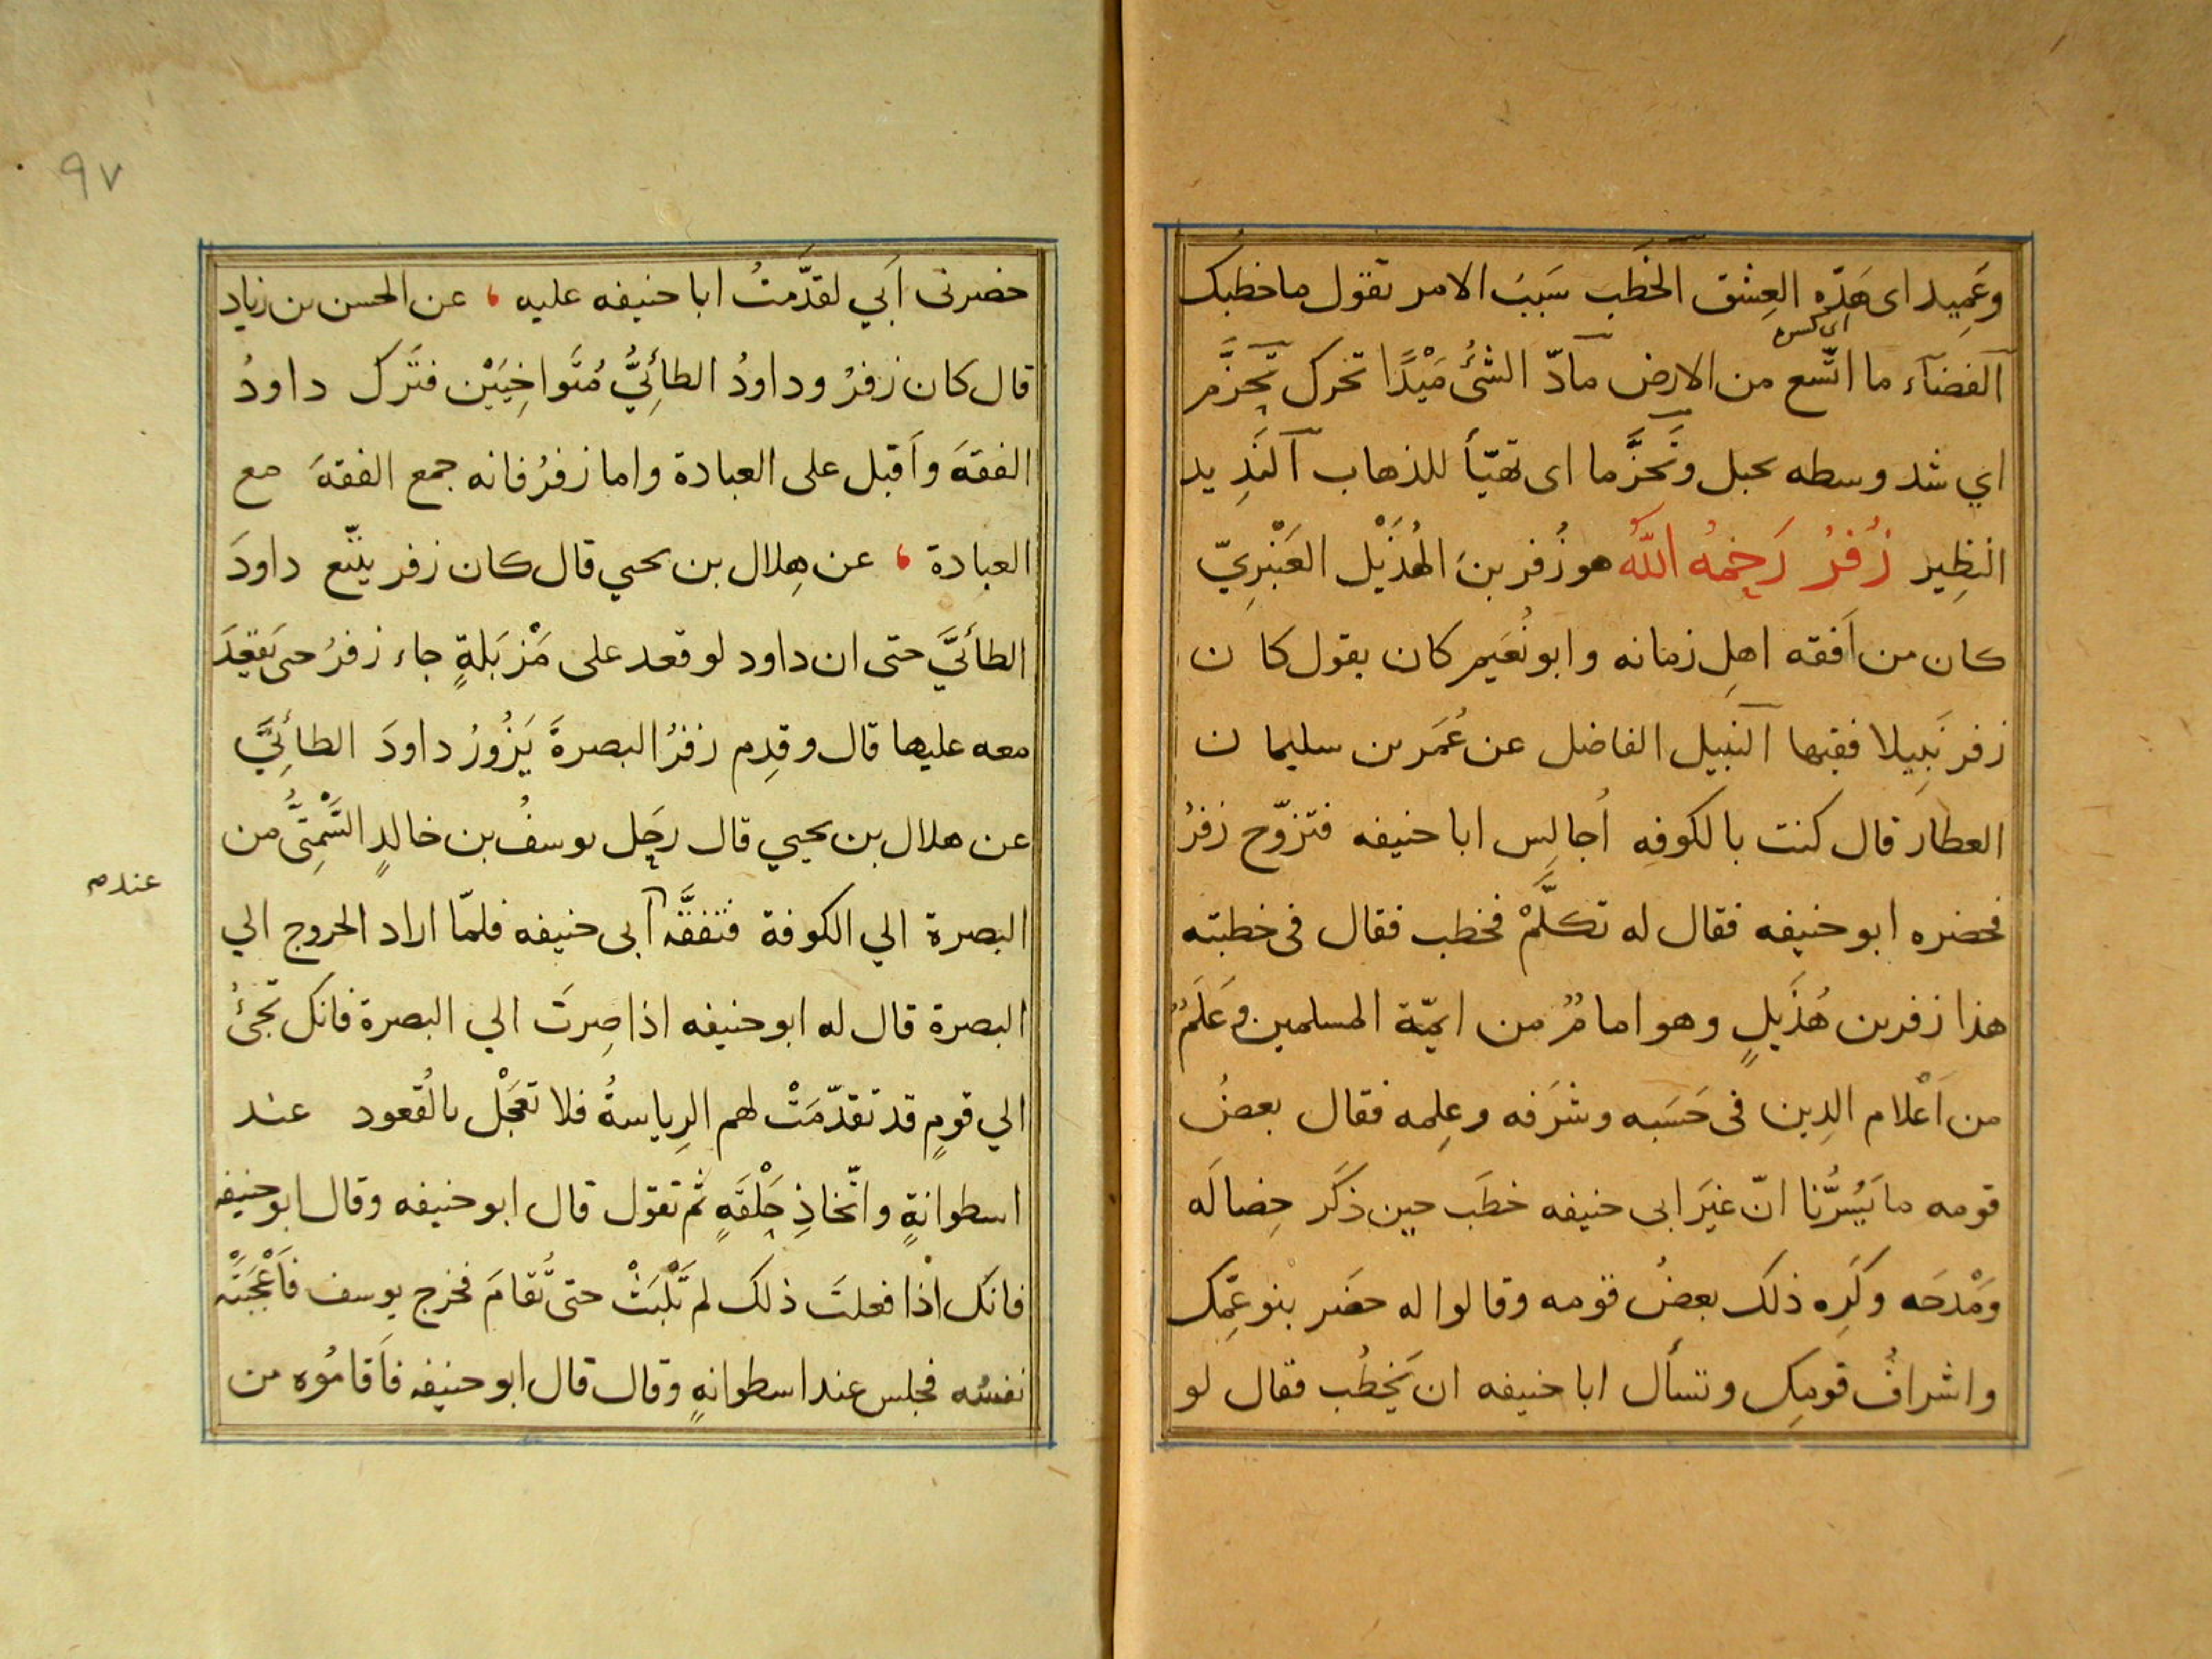 وعَمِيد اى هَدِّه العِشق الخَطب سَبَبُ الامر تقول ما خطبك
اى كسره
الفضاء ما اتّسع من الارض مادّ الشئُ مَيْدًا تحرك تحَزَّم
اي شد وسطه بحبل وتَحَزَّما اى تهيّأ للذهاب النَدِيد
النظِير زُفرُ رَحِمهُ اللّه هو زُفر بنَ الهُذَيْل العَنْبَرِيّ
كان من اَفقه اهلِ زمانه وابو نُعَيم كان يقول كان
زفر نَبِيلا فقيها النبيل الفاضل عن عُمَر بن سليمان
العطار قال كنت بالكوفِه اُجالِس ابا حنيفه فتزوّج زفرُ
فحضره ابو حنيفه فقال له تكلَّمْ فخطب فقال فى خطبته
هذا زفر بن هُذَيلٍ وهو امامٌ من ايمّة المسلمين وعَلَمٌ
من اَعْلام الدِين فى حَسَبه وشرَفه وعِلمه فقال بعضُ
قومه ما يَسُرُّنا انّ غيَر ابى حنيفه خطَب حين ذكَر خِصالَه
ومَدْحَه وكَرِه ذلك بعضُ قومه وقالوا له حضَر بنو عمِّك
واشرافُ قومِك وتسأل ابا حنيفه ان يَخطُب فقال لو
٩٧
حضرنى اَبَي لقدَّمتُ ابا حنيفه عليه ، عن الحسن بن زياد
قال كان زفرُ وداودُ الطائِيُّ مُتَواخِيَيْن فتَرك داودُ
الفقهَ واَقبل على العبادة واما زفرُ فانه جمع الفقهَ مع
العبادة ، عن هِلال بن يحيي قال كان زفر يتّبع داودَ
الطائيَّ حتى ان داود لو قعد على مَزْبَلةٍ جاء زفرُ حتى يَقعُدَ
معه عليها قال وقدِم زفرُ البصرةَ يَزُورُ داودَ الطائِيَّ
عن هلال بن يحيي قال رحَل يوسفُ بن خالدٍ السَّمْتِىُّ من
البصرة الي الكوفة فتفقَّه ابى حنيفه فلمّا اراد الخروج الي
عند م
البصرة قال له ابو حنيفه اذا صِرتَ الي البصرة فانك تجئُ
الي قومٍ قد تقدّمَتْ لهم الرِياسةُ فلا تعَجَلْ بالقُعود عند
اسطوانةٍ واتّخاذِ حَلْقَةٍ ثم تقول قال ابو حنيفه وقال ابو حنيفه
فانك اذا فعلتَ ذلك لم تَلْبَثْ حتى تُقامَ فخرج يوسف فاَعْجَبَتْه
نفسُه فجلس عند اسطوانةٍ وقال قال ابو حنيفه فاَقامُوه من